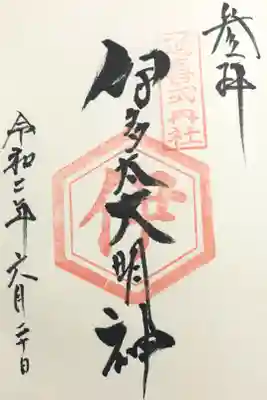 參拝
延喜式内社
伊多太大明神
伊
令和二年六月二十日